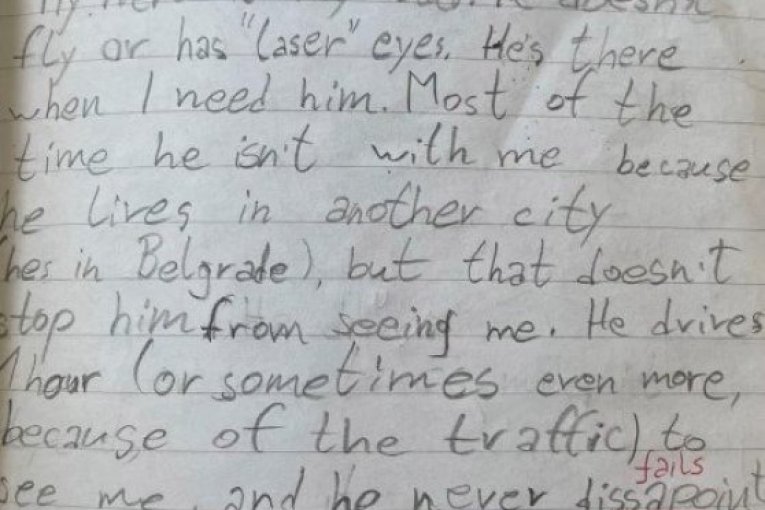 fly or has "laser" eyes. He's there
when I need him. Most of the
time he isn't with me because
he lives in another city
hes in Belgrade), but that doesn't
stop him from seeing me. He drives
1 hour (or sometimes even more,
because of the traffic) to
fails
see me, and he never dissapoint